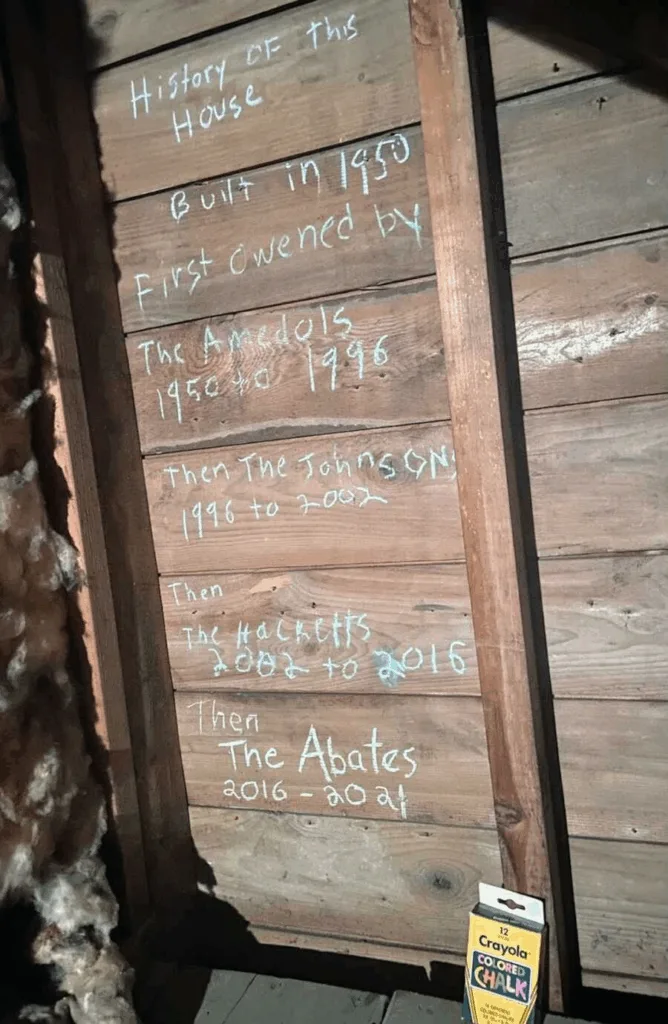 History of This
House
Built in 1950
First owened by
The Amedols
1950 to 1996
Then The JohnsONs
1996 to 2002
Then
The Hacketts
2002 to 2016
Then
The Abates
2016 - 2021
12
Crayola
COLORED
CHALK